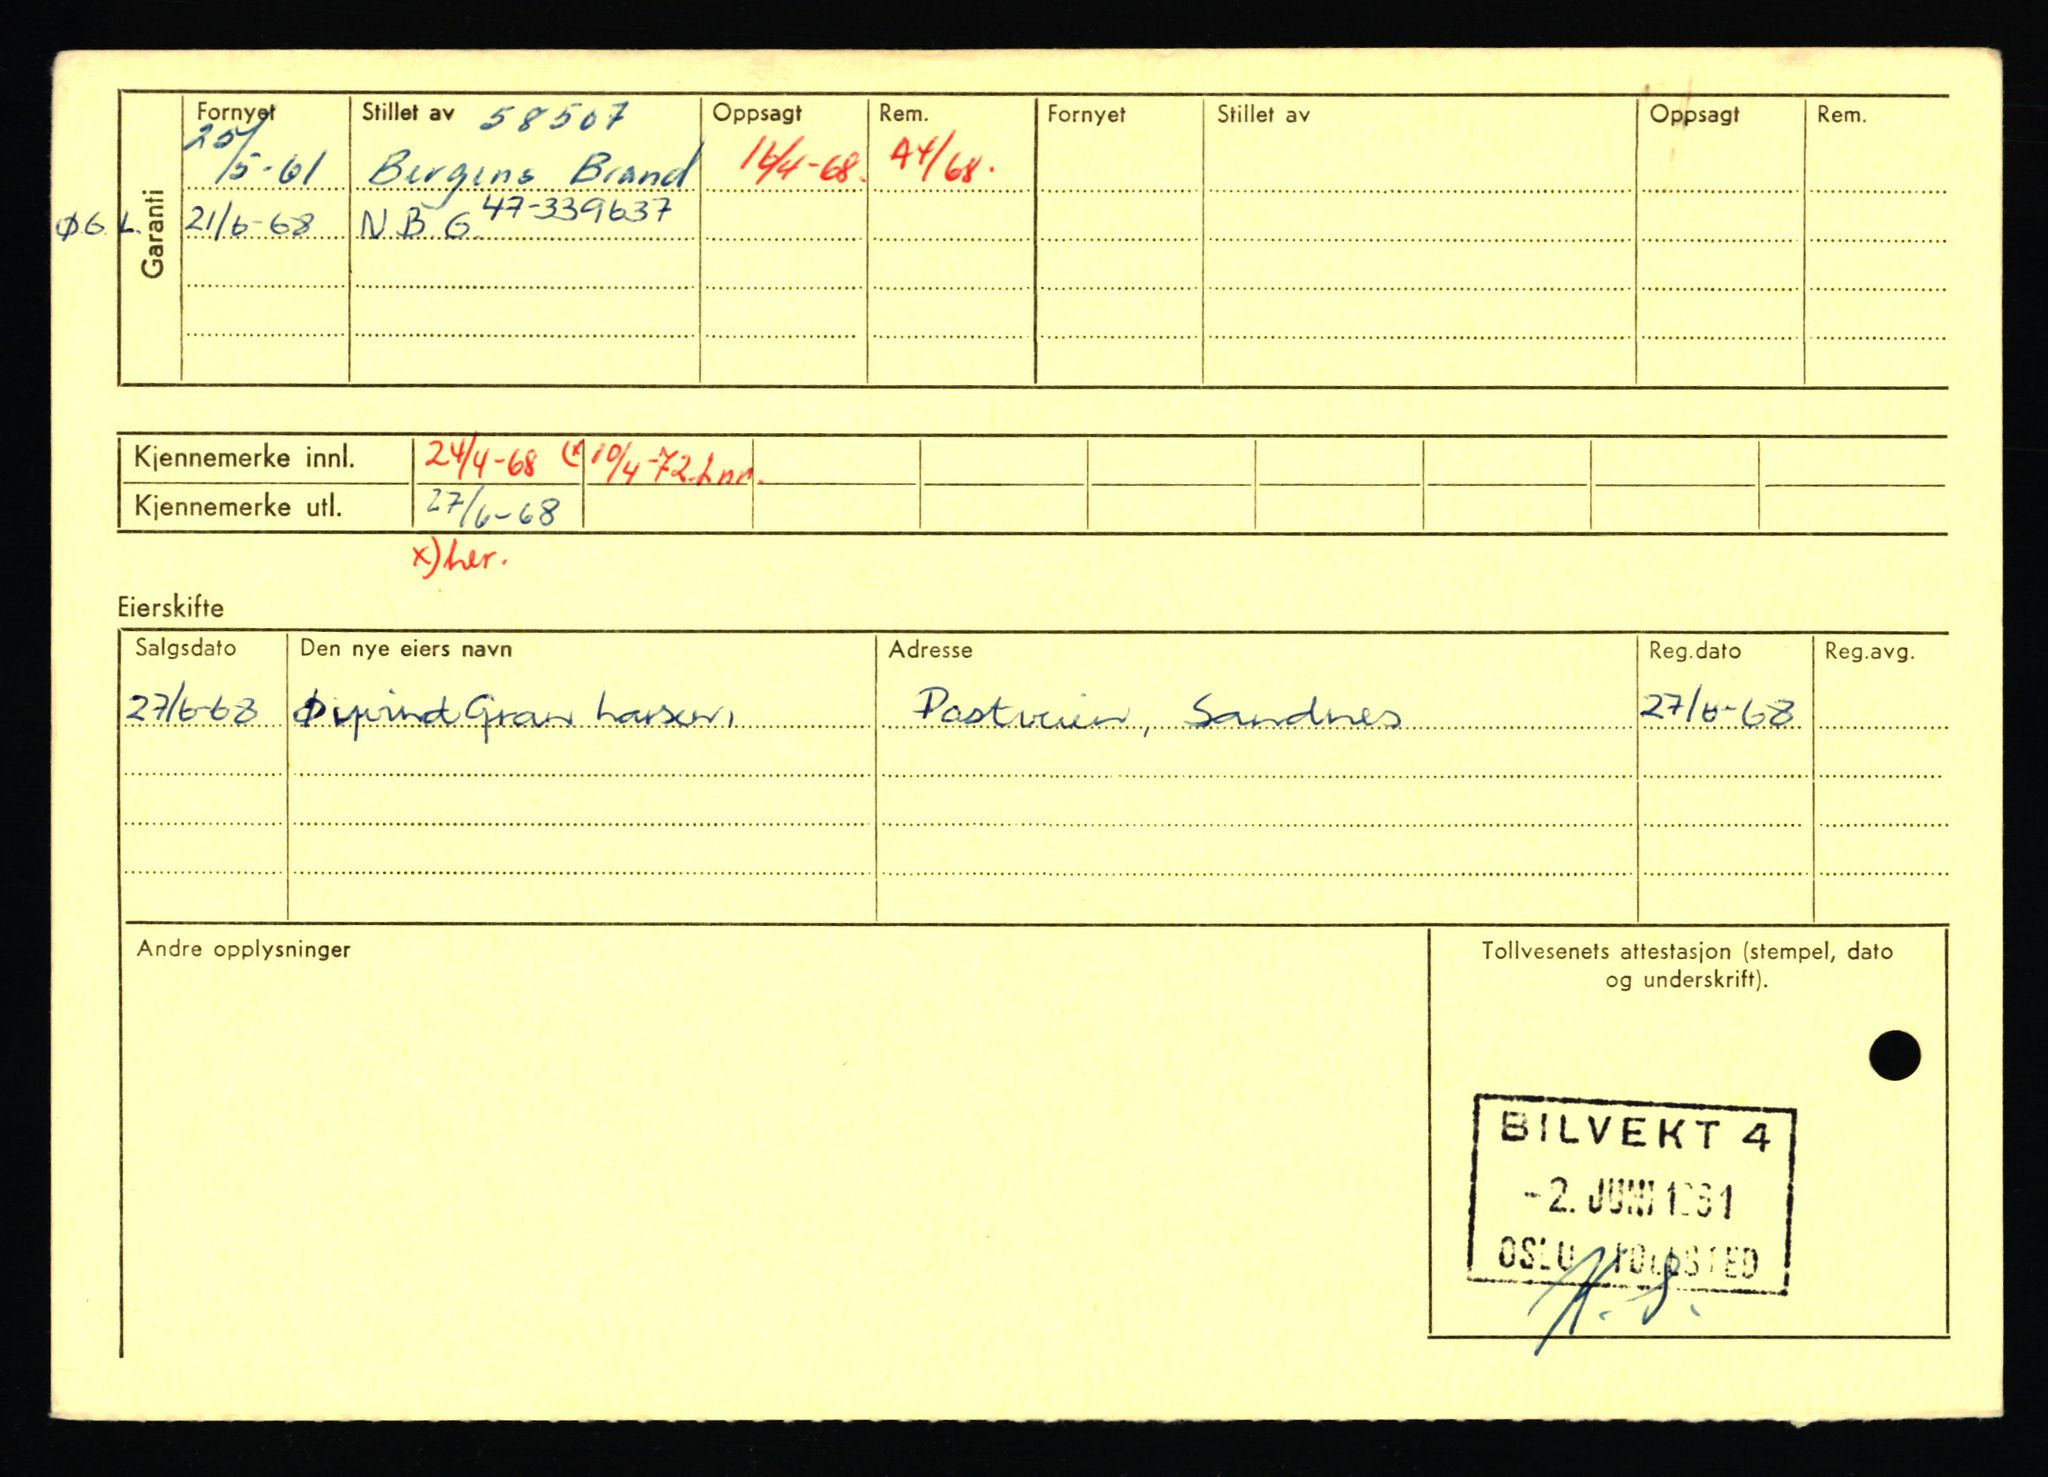 Garanti
Fornyet Stillet av 58507 Oppsagt Rem. Fornyet Stillet av Oppsagt Rem.
25/5-61 Bergens Brand 16/4-68. A4/68.
Ø.G.L. 21/6-68 N.B.G. 47-339637
Kjennemerke innl. 24/4-68 (x 10/4-72
Kjennemerke utl. 27/6-68
x) her.
Eierskifte
Salgsdato Den nye eiers navn Adresse Reg.dato Reg.avg.
27/6-68 Øyvind Gran Larsen, Postveien, Sandnes 27/6-68
Andre opplysninger
Tollvesenets attestasjon (stempel, dato
og underskrift).
BILVEKT 4
-2. JUNI 1961
OSLO TOLLSTED